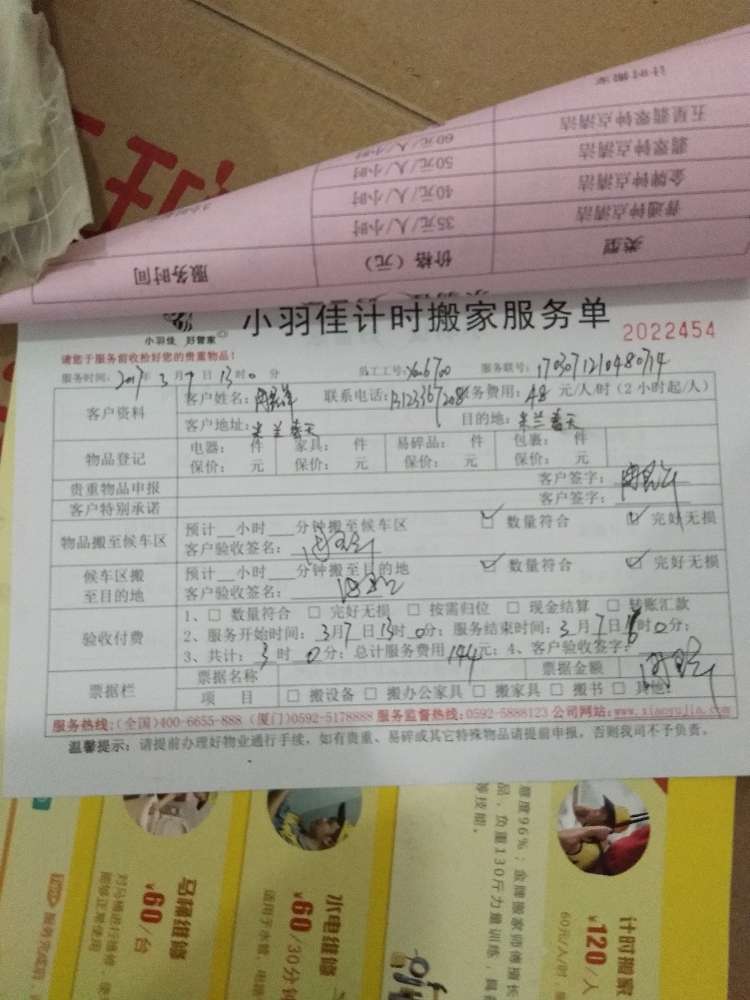 计时搬家
五星翡翠钟点清洁 60元/人/小时
翡翠钟点清洁 50元/人/小时
金牌钟点清洁 40元/人/小时
普通钟点清洁 35元/人/小时
类型 价格（元） 服务时间
小羽佳 好管家
小羽佳计时搬家服务单
2022454
请您于服务前收检好您的贵重物品！
服务时间：2017年3月7日13时0分 员工工号： 服务联号：170307121048074
客户资料
客户姓名： 联系电话： 服务费用：48元/人/时（2小时起/人）
客户地址：米兰春天 目的地：米兰春天
物品登记
电器： 件 家具： 件 易碎品： 件 包裹： 件
保价： 元 保价： 元 保价： 元 保价： 元
贵重物品申报 客户签字：
客户特别承诺 客户签字：
物品搬至候车区
预计__小时__分钟搬至候车区 ☑ 数量符合 ☑ 完好无损
客户验收签名：
候车区搬至目的地
预计__小时__分钟搬至目的地 ☑ 数量符合 ☑ 完好无损
客户验收签名：
验收付费
1、□ 数量符合 □ 完好无损 □ 按需归位 □ 现金结算 □ 转账汇款
2、服务开始时间：3月7日13时0分；服务结束时间：3月7日16时0分；
3、共计：3时0分；总计服务费用144元；4、客户验收签字：
票据栏
票据名称 票据金额
项目 □ 搬设备 □ 搬办公家具 □ 搬家具 □ 搬书 □ 其他：
服务热线：(全国)400-6655-888 (厦门)0592-5178888 服务监督热线：0592-5888123 公司网站：www.xiaoyujia.com
温馨提示：请提前办理好物业通行手续，如有贵重、易碎或其它特殊物品请提前申报，否则我司不予负责。
计时搬家
¥120/人
60元/人/时
意度96%；金牌搬家师傅擅长
品，负重130斤力量训练，具
等技能。
水电维修
¥60/30分钟
适用于水管、电路
马桶维修
¥60/台
对马桶进行维修，使
能够正常使用
服务完成后